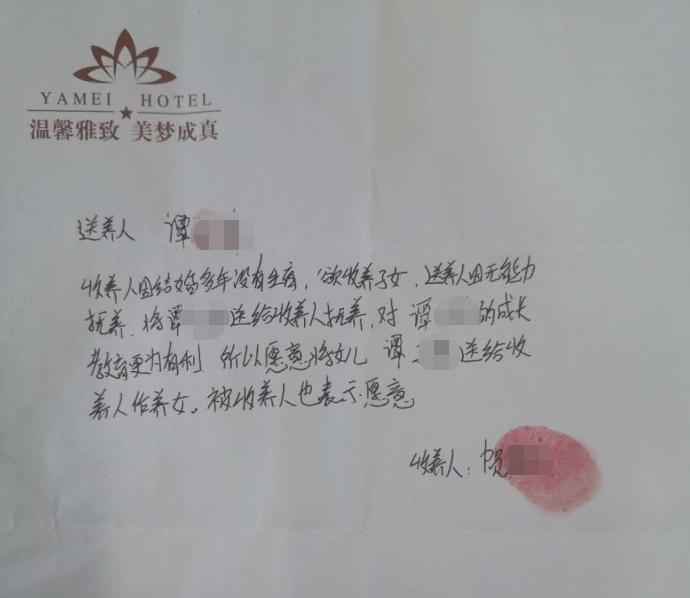 YAMEI HOTEL
温馨雅致 美梦成真
送养人 谭
收养人因结婚多年没有生育，欲收养子女，送养人因无能力
抚养，将谭 送给收养人抚养，对 谭 的成长
教育更为有利 所以愿意将女儿 谭 送给收
养人作养女。被收养人也表示愿意
收养人：